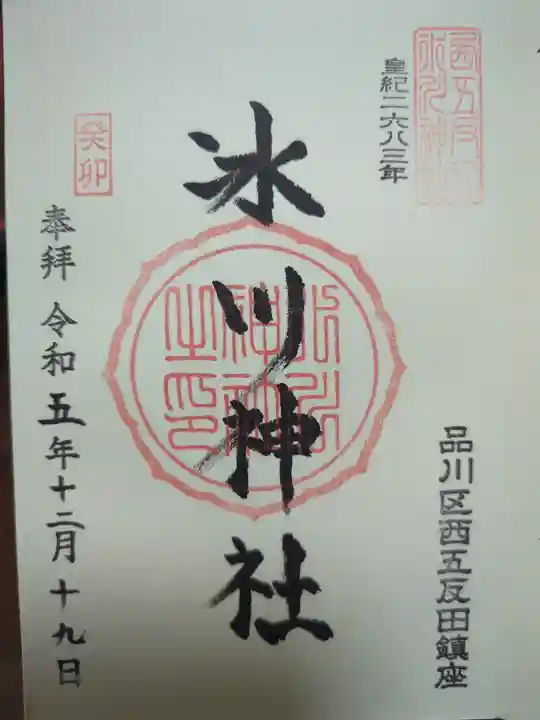 西五反田
氷川神社
皇紀二六八三年
品川区西五反田鎮座
氷川神社
氷川
神社
之印
癸卯
奉拝 令和五年十二月十九日